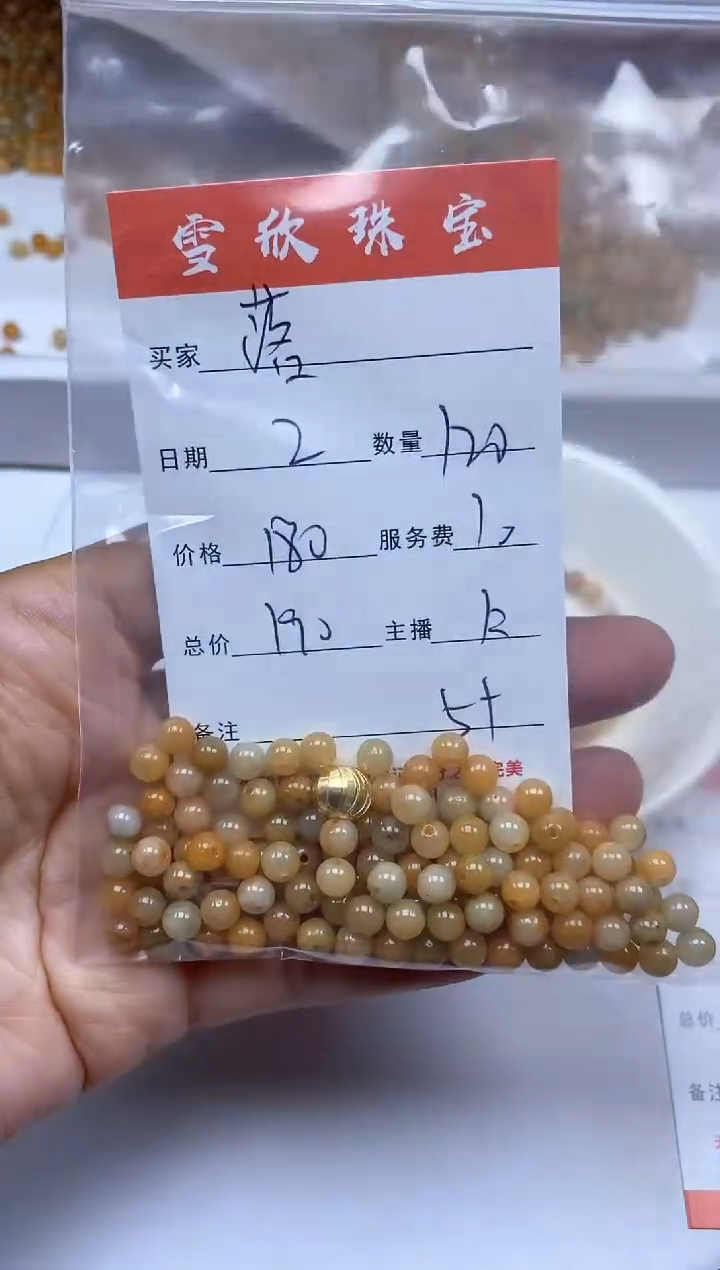 雪欣珠宝
买家 落
日期 2 数量 120
价格 180 服务费 10
总价 190 主播 k
备注 5十
完美
总价
备注